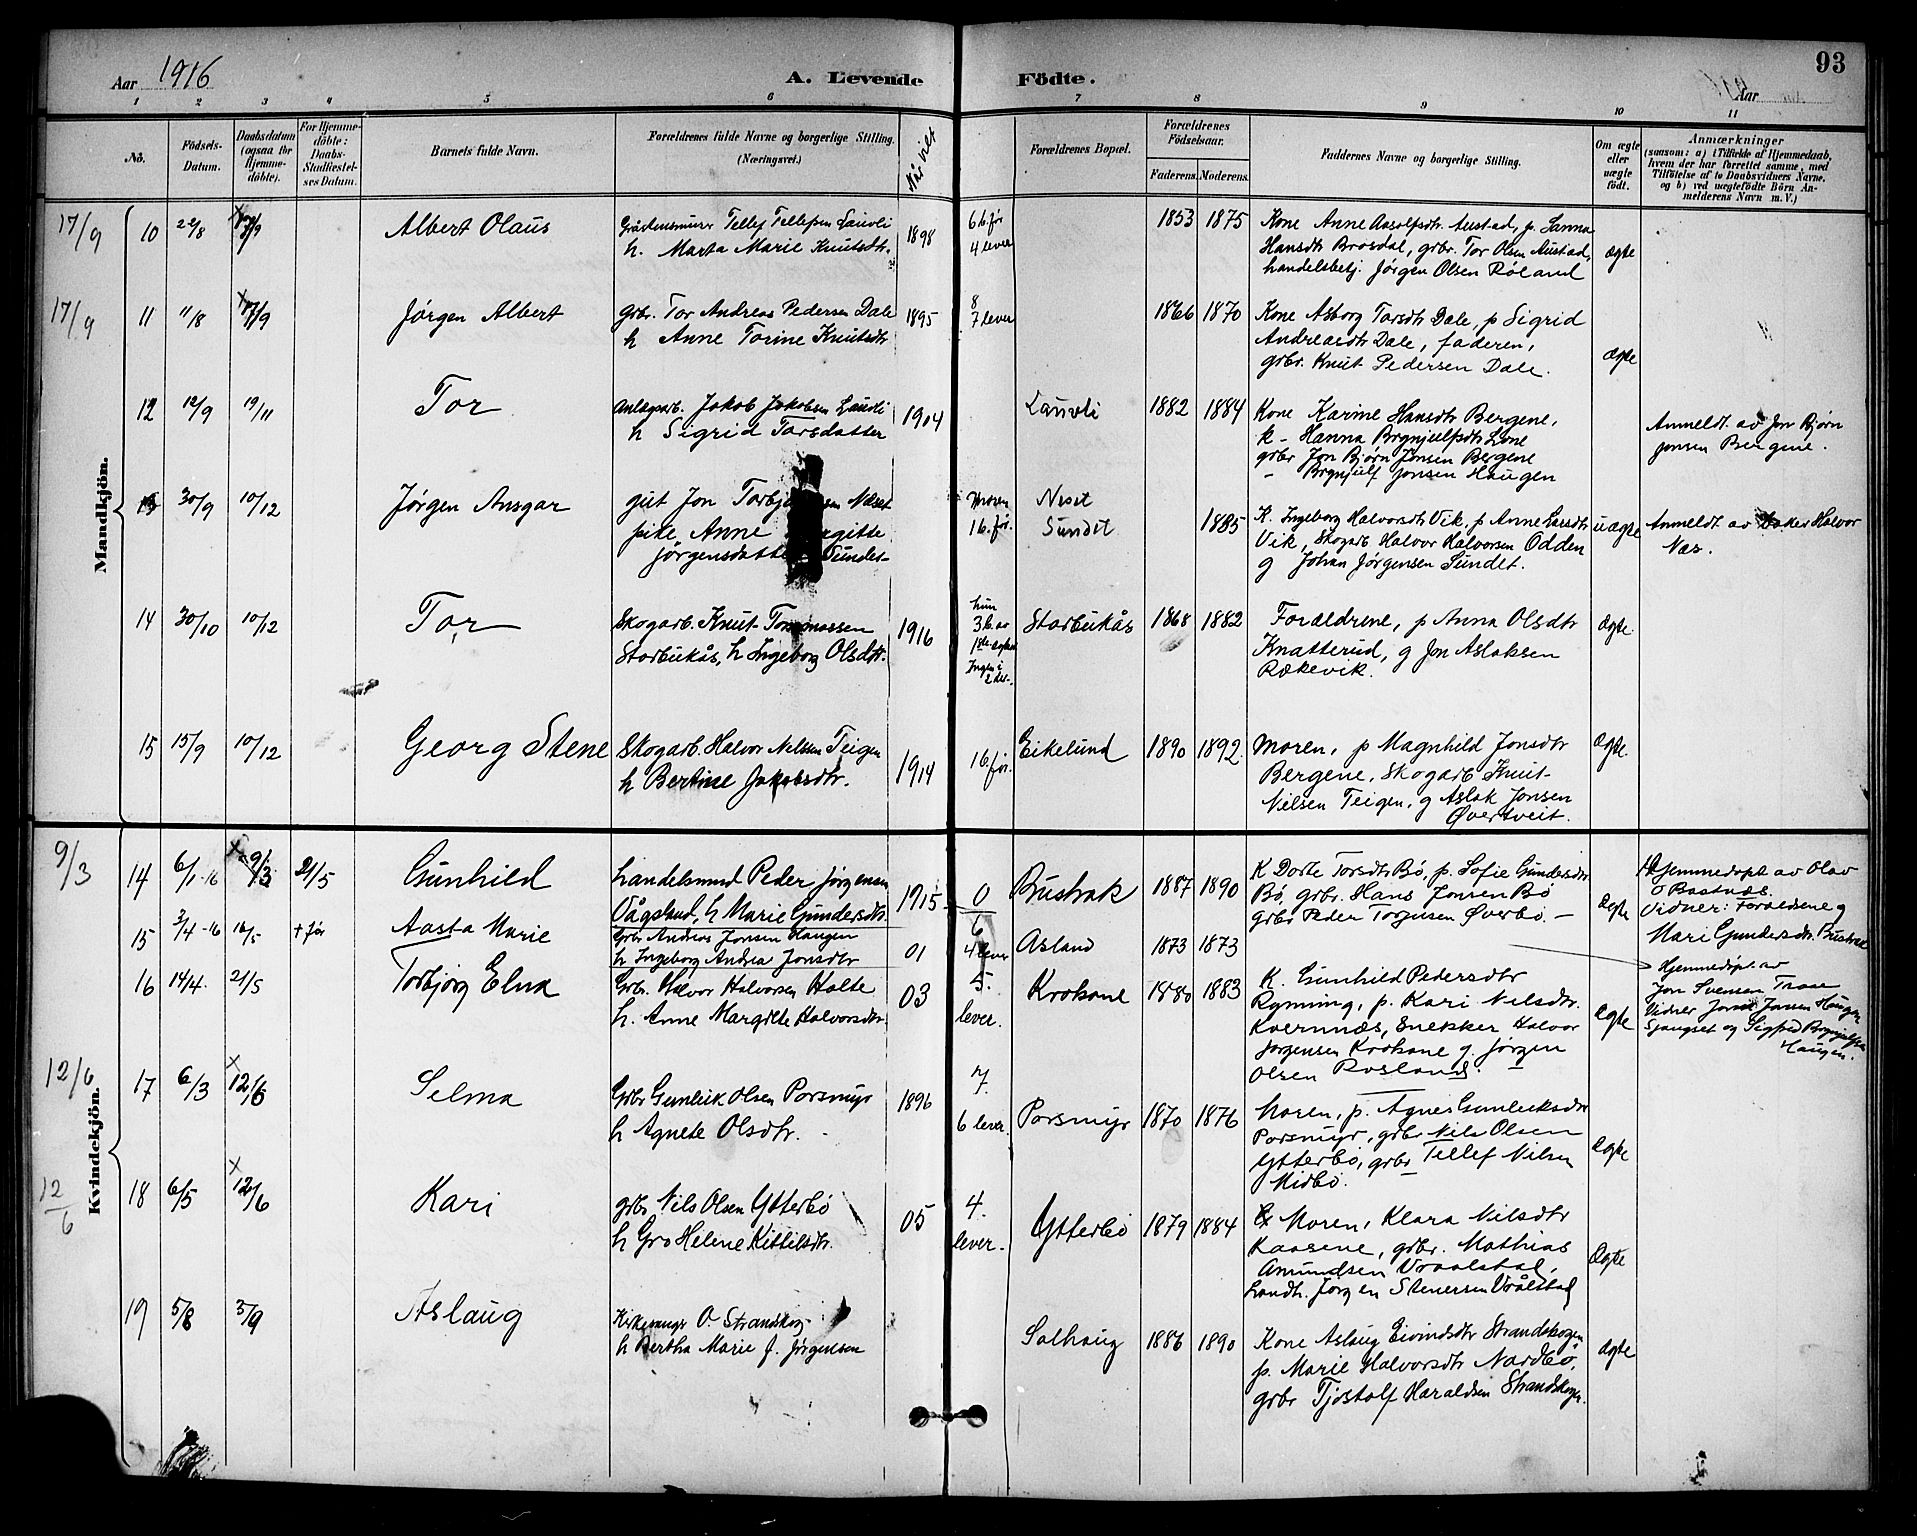 Aar 1916
A. Levende Födte.
93
Aar
1 2 3 4 5 6 7 8 9 10 11
No.
Födsels-Datum.
Daabsdatum (ogsaa for Hjemme-döbte).
For Hjemme-döbte: Daabs-Stadfæstel-ses Datum.
Barnets fulde Navn.
Forældrenes fulde Navne og borgerlige Stilling. (Næringsvei.)
Når viet
Forældrenes Bopæl.
Forældrenes Födselsaar.
Faderens. Moderens.
Faddernes Navne og borgerlige Stilling.
Om ægte eller uægte födt.
Anmærkninger
(saasom: a) i Tilfælde af Hjemmedaab, hvem der har forrettet samme, med Tilföielse af to Daabsvidners Navne, og b) ved uægtefödte Börn An-melderens Navn m. V.)
Mandkjön.
17/9 10 22/8 17/9 Albert Olaus
Tellef Tellefsen Lauvli
h. Marta Marie Knutsdtr. 1898
6 b. før
4 lever
1853 1875
Kone Anne Aasolfsdtr Austad, p. Sanna
Hansdtr Brosdal, grbr. Tor Olsen Austad,
handelsbetj. Jørgen Olsen Røland
ægte
17/9 11 11/8 17/9 Jørgen Albert
grbr. Tor Andreas Pedersen Dale
h Anne Torine Knutsdtr 1895
8
7 lever
1866 1870
Kone Asborg Torsdtr Dale, p Sigrid
Andreasdtr Dale, faderen,
grbr. Knut Pedersen Dale.
ægte
12 12/9 19/11 Tor
Anlægsarb. Jakob Jakobsen Lauvli
h Sigrid Torsdatter 1904
Lauvli 1882 1884
Kone Karine Hansdtr Bergene,
k - Hanna Brynjulfsdtr Lone
grbr Jon Bjørn Jonsen Bergene
- Brynjulf Jonsen Haugen
Anmeldt av Jon Bjørn
Jonsen Bergene.
13 30/9 10/12 Jørgen Ansgar
gut Jon Næset
pike Anne
Sundet
Moren
1 b. før.
Neset
Sundet
1885
K. Ingeborg Halvorsdtr Vik, p Anne Larsdtr
Vik, Skogarb Halvor Halvorsen Odden
g Johan Jørgensen Sundet.
uægte
Anmeldt av Halvor
Næs.
14 30/10 10/12 Tor
Skogarb. Knut Tommassen
Storbukås, h Ingeborg Olsdtr. 1916
hun
3 b. av
1ste ægtesk
Ingen i
2 det.
Storbukås 1868 1882
Forældrene, p Anna Olsdtr
Knatterud, g Jon Aslaksen
Rækevik.
ægte.
15 15/9 10/12 Georg Stene
Skogarb. Halvor Nilsen Teigen
h Bertine Jakobsdtr. 1914
1 b. før.
Eikelund 1890 1892.
Moren, p Magnhild Jonsdtr
Bergene, Skogarb Knut
Nilsen Teigen, g Aslak Jonsen
Øvertveit.
ægte
Kvindekjön.
9/3 14 6/1-16 9/3 21/5 Gunhild
handelsmand Peder Jørgensen
Vågslund, h Marie Gundersdtr. 1915
0
Bustrak 1887 1890
K Dorte Torsdtr Bø, p. Sofie Gundersdtr
Bø, grbr. Hans Jonsen Bø
grbr Peder Torjusen Øverbø. -
ægte
Hjemmedøpt av Olav
O Bastnæs.
Vidner: Forældrene g
Mari Gundersdtr. Bustrak
15 3/4-16 16/5 + før Aasta Marie
Grbr Andreas Jonsen Haugen
h Ingeborg Andrea Jonsdtr 01
6
4 lever
Åsland 1873 1873
Hjemmedøpt av
Jon Svensen Traae
Vidner Jonsen Haugen
Sjangset og Sigfred Brynjulfsen
Haugen.
16 14/4. 21/5 Torbjørg Elna
Grbr. Halvor Halvorsen Holte
h. Anne Margitte Halvorsdtr. 03
5.
lever.
Krokane 1880 1883
K. Gunhild Pedersdtr
Rynning, p. Kari Nilsdtr.
Kvernnæs, Snekker Halvor
Jørgensen Krokane g. Jørgen
Olsen Rosland.
ægte
12/6 17 6/3 12/6 Selma
Grbr Gunleik Olsen Porsmyr
h Agnete Olsdtr. 1896
7.
6 lever.
Porsmyr 1870 1876
Moren, p. Agnes Gunleiksdtr
Porsmyr, grbr Nils Olsen
Ytterbø, grbr Tellef Nilsen
Midbø.
ægte
12/6 18 6/5 12/6 Kari
grbr Nils Olsen Ytterbø
h Gro Helene Kittilsdtr. 05
4.
lever.
Ytterbø 1879 1884
Moren, Klara Nilsdtr
Kaasene, grbr. Mathias
Amundsen Vraalstad,
Landh. Jørgen Stenersen Vrålstad
ægte
19 5/8 3/9 Aslaug
Kirkesanger O. Strandskog
h Bertha Marie J. Jørgensen
Solhaug 1886 1890
Kone Aslaug Eivindsdtr Strandskogen
p. Marie Halvorsdtr Nordbø,
grbr Tjøstolf Haraldsen Strandskogen.
ægte